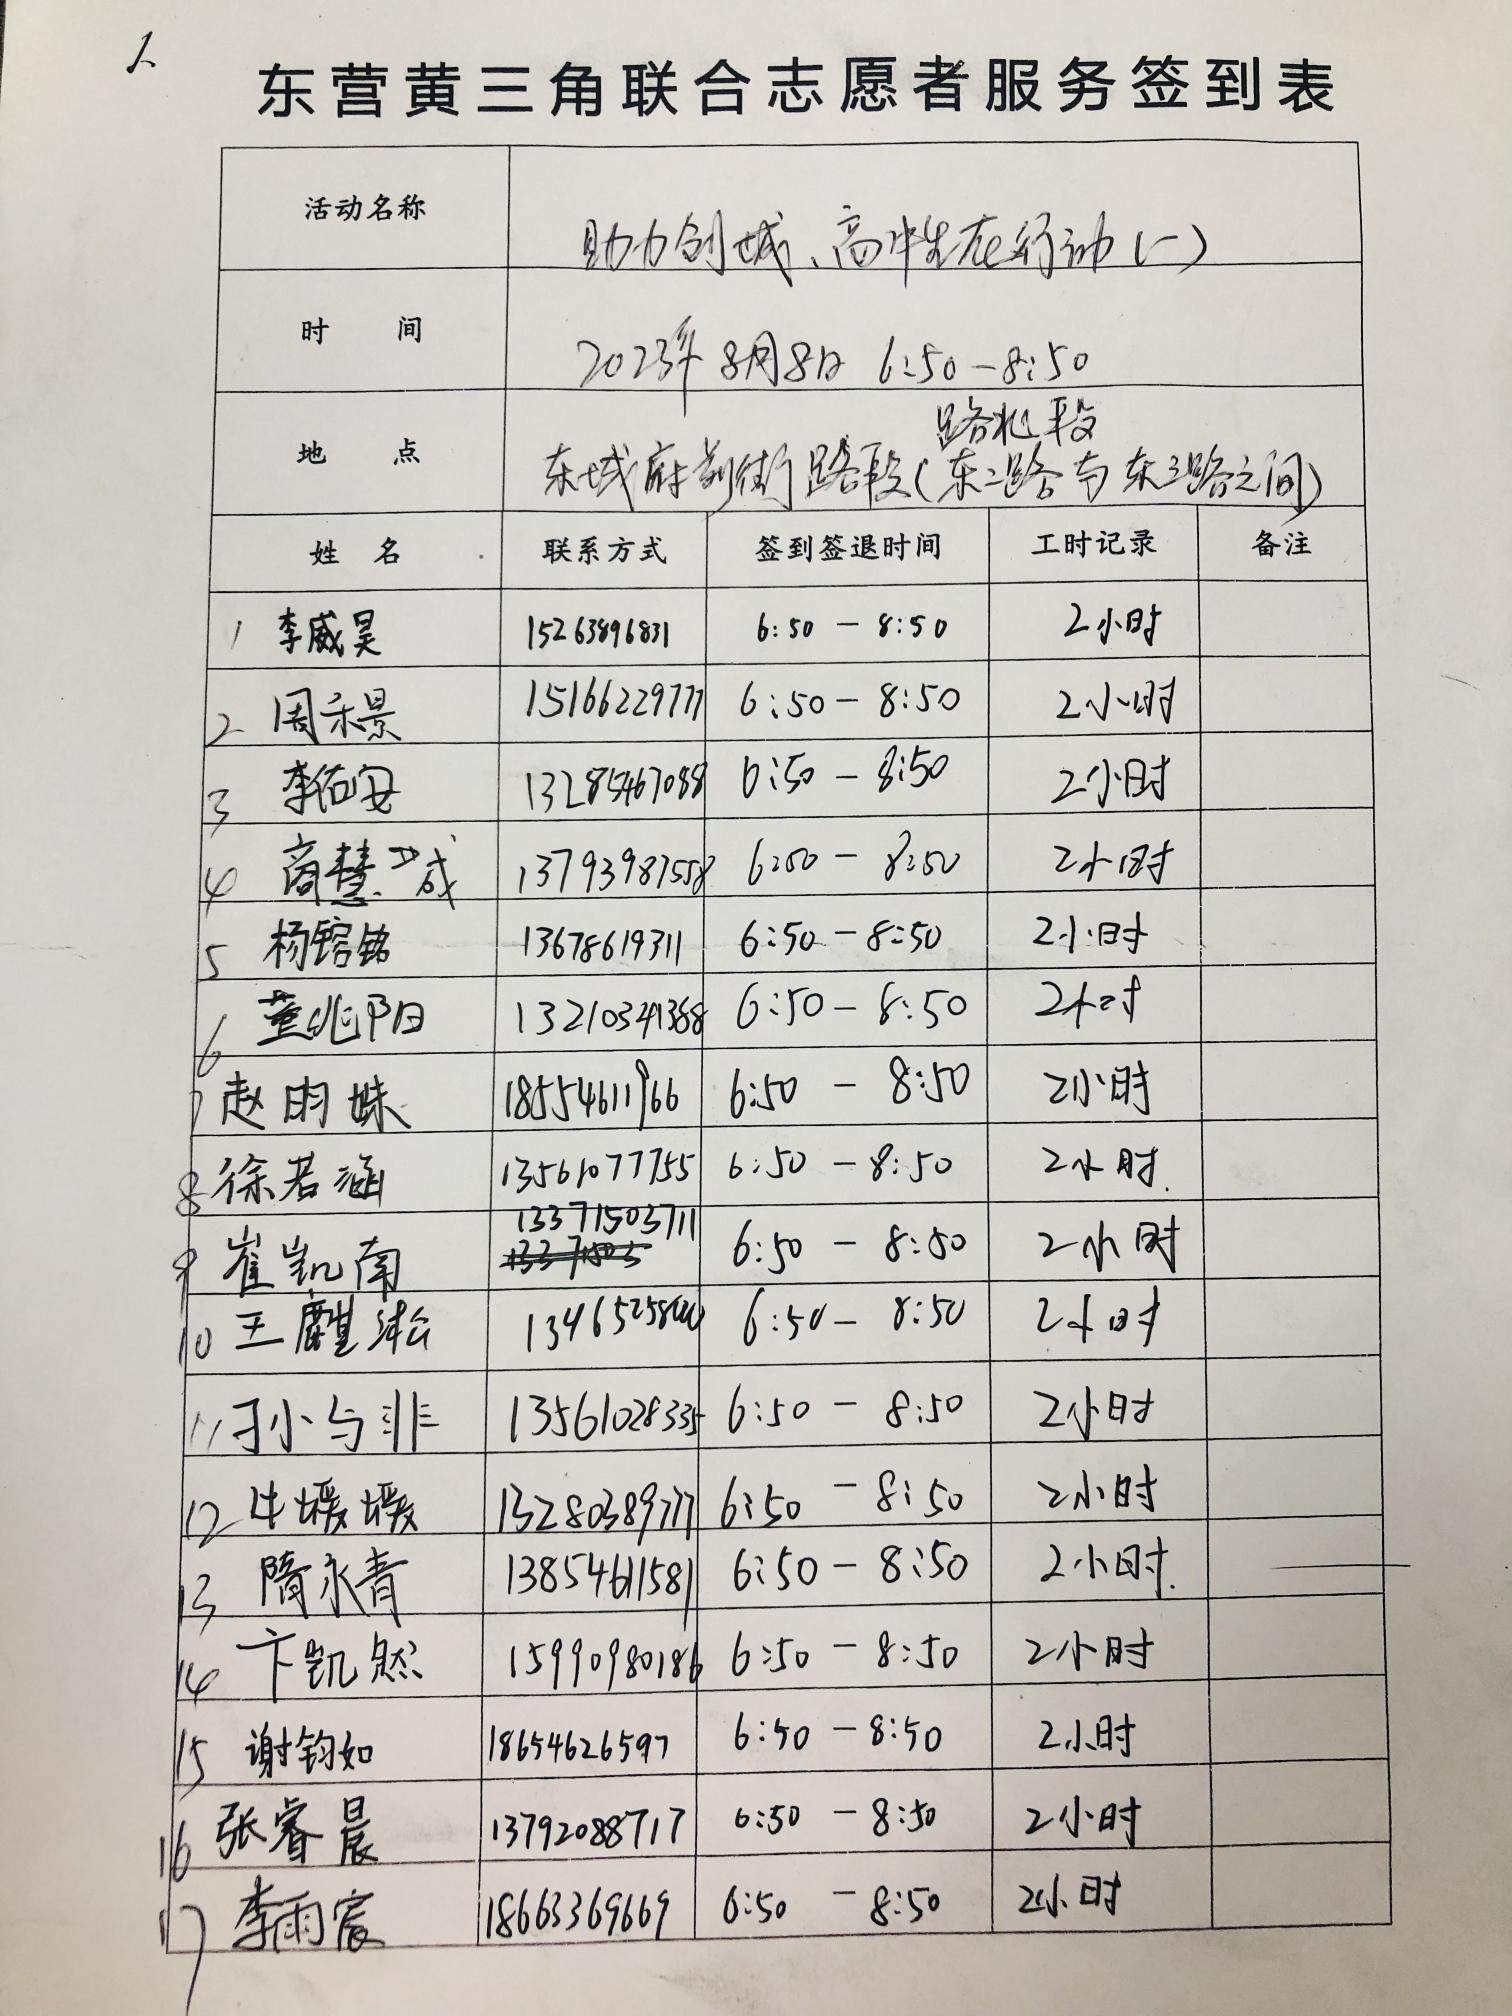 东营黄三角联合志愿者服务签到表
活动名称 助力创城、高中生在行动(一)
时 间 2023年8月8日 6:50-8:50
路北段
地 点 东城府前街路段(东二路与东三路之间)
姓 名 联系方式 签到签退时间 工时记录 备注
1 李威昊 15263896831 6:50-8:50 2小时
2 周禾景 15166229777 6:50-8:50 2小时
3 李佑安 13285467088 6:50-8:50 2小时
4 商慧 13793987558 6:50-8:50 2小时
5 杨镕铭 13678619311 6:50-8:50 2小时
6 董兆阳 13210341388 6:50-8:50 2小时
7 赵明姝 18554611966 6:50-8:50 2小时
8 徐若涵 13561077755 6:50-8:50 2小时
9 崔凯南 13371503711 6:50-8:50 2小时
10 王麒淞 6:50-8:50 2小时
11 小与非 13561028335 6:50-8:50 2小时
12 牛媛媛 13280389777 6:50-8:50 2小时
13 隋永青 13854611581 6:50-8:50 2小时
14 卞凯然 15990980186 6:50-8:50 2小时
15 谢钧如 18654626597 6:50-8:50 2小时
16 张睿晨 13792088717 6:50-8:50 2小时
17 李雨宸 18663369669 6:50-8:50 2小时